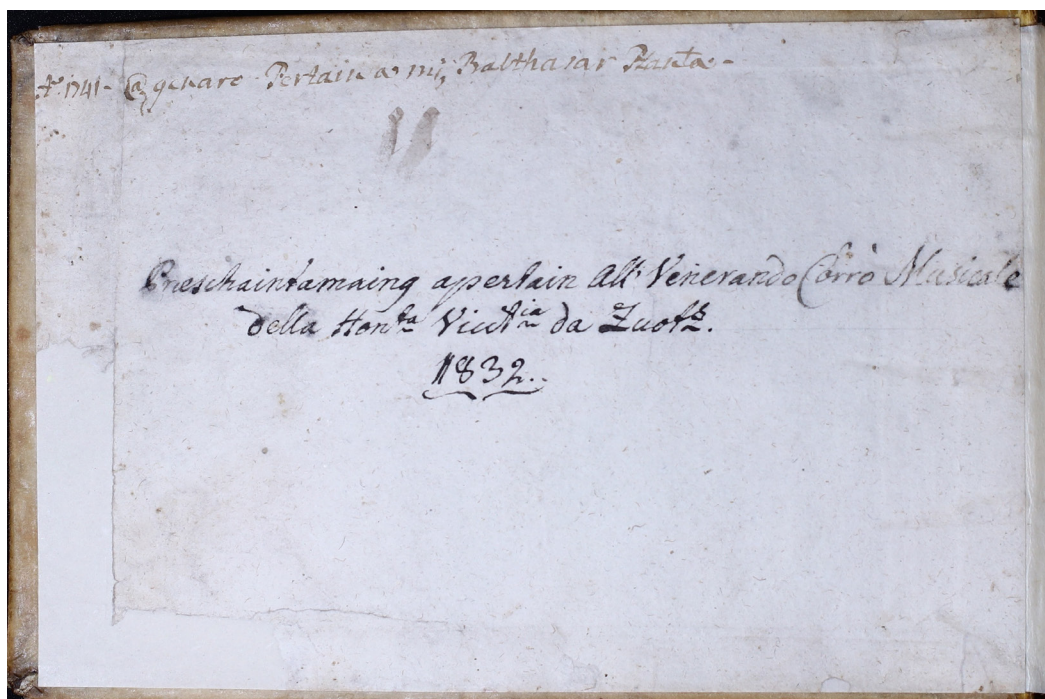 Aº 1741 - @ genaro Pertain a mi, Balthasar Planta -
Preschaintamaing apertain All' Venerando Corro Musicale
della Honta Vicinia da Zuotz.
1832.